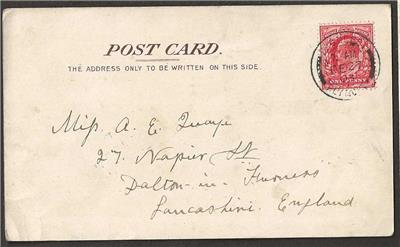 POST CARD.
THE ADDRESS ONLY TO BE WRITTEN ON THIS SIDE.
ONE PENNY
Miss A. E. Quaye
27. Napier St
Dalton-in-Furness
Lancashire. England